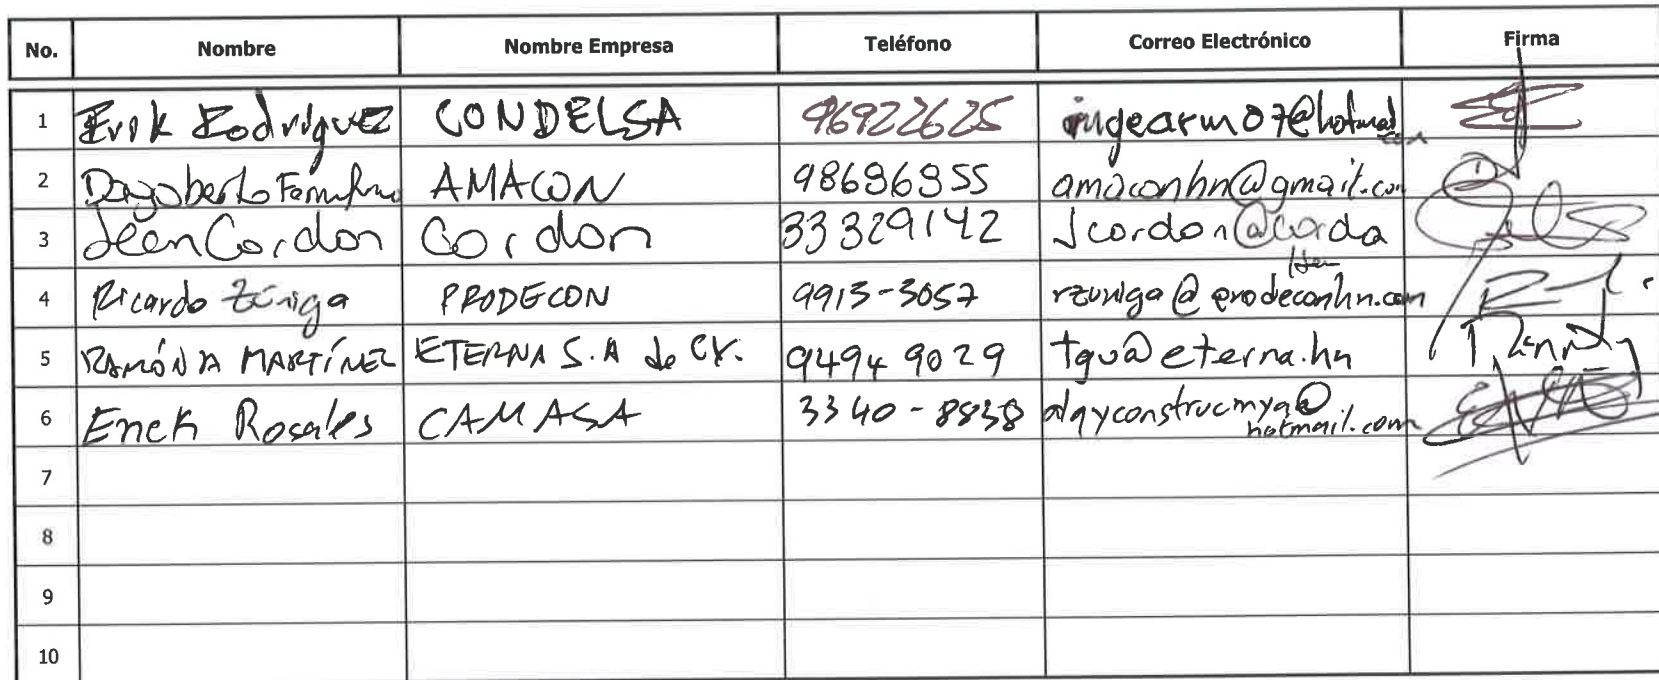 No. Nombre Nombre Empresa Teléfono Correo Electrónico Firma
1 Erik Rodríguez CONDELSA 96922625 ingearm07@hotmail.com
2 Dagoberto AMACON 98696955 amaconhn@gmail.com
3 Jeen Cordon Cordon 33329142 Jcordon@corda
4 Ricardo Zúniga PRODECON 9913-3057 rzuniga@prodeconhn.com
5 RAMÓN A MARTÍNEZ ETERNA S.A de CV. 9494 9029 tgu@eterna.hn
6 Erick Rosales CAMASA 3340-8838
hotmail.com
7
8
9
10